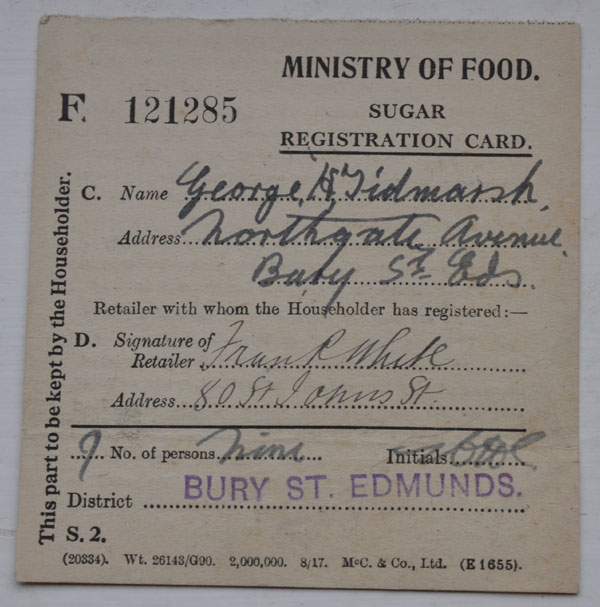 MINISTRY OF FOOD.
F. 121285
SUGAR
REGISTRATION CARD.
This part to be kept by the Householder.
C. Name George H Tidmarsh,
Address... Northgate Avenue.
Bury St. Eds.
Retailer with whom the Householder has registered:—
D. Signature of
Retailer Frank White
Address... 80 St Johns St.
9 No. of persons nine
Initials
District BURY ST. EDMUNDS.
S. 2.
(20334). Wt. 26143/G90. 2,000,000. 8/17. McC. & Co., Ltd. (E 1655).